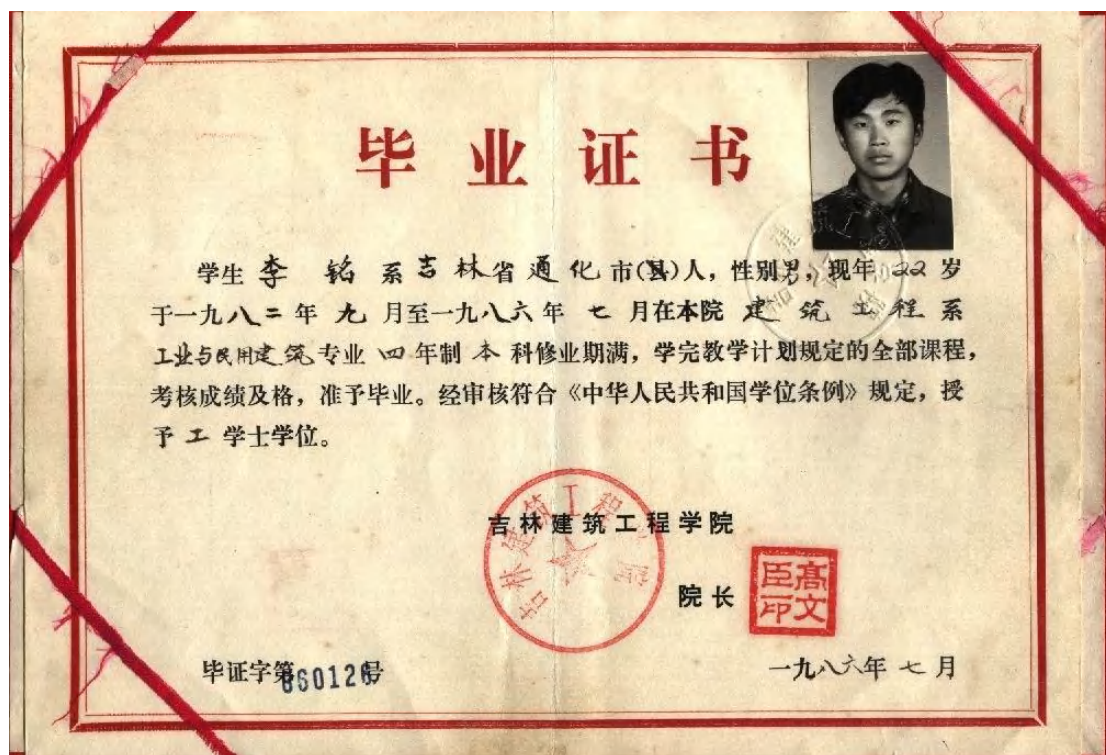 毕业证书
学生 李铭 系吉林省通化市(县)人，性别男，现年 22 岁
于一九八二年 九 月至一九八六年 七 月在本院 建筑工程系
工业与民用建筑专业 四 年制 本 科修业期满，学完教学计划规定的全部课程，
考核成绩及格，准予毕业。经审核符合《中华人民共和国学位条例》规定，授
予 工 学士学位。
吉林建筑工程学院
吉林建筑工程学院
院长
高文臣印
毕证字第860126号
一九八六年 七 月